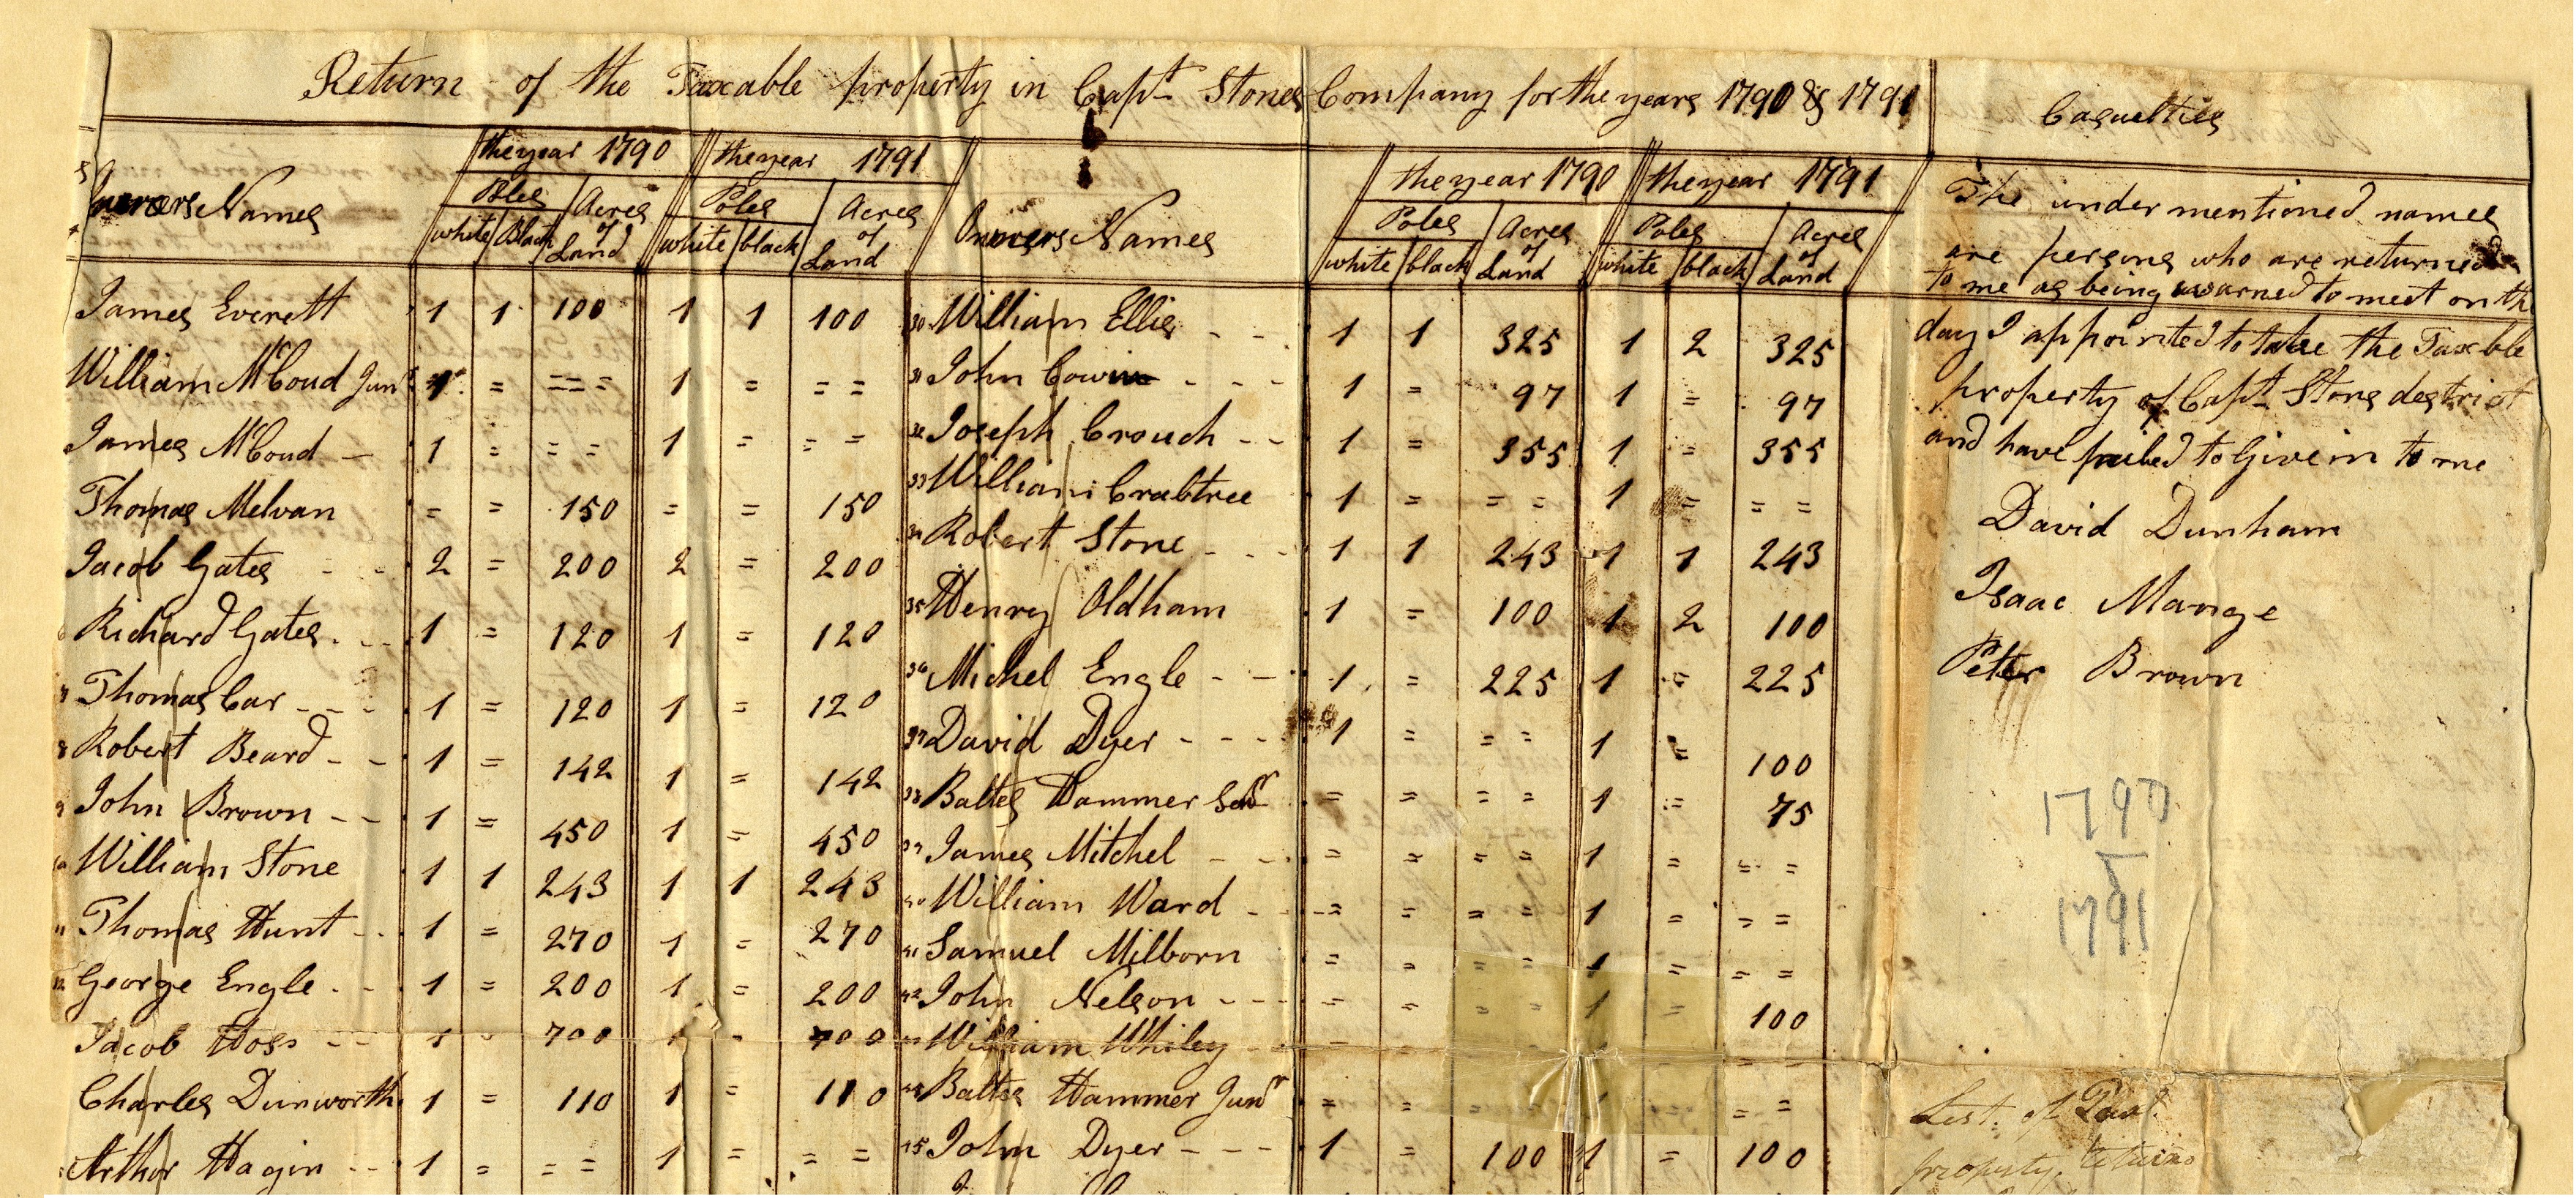 Return of the Taxable property in Capt Stones Company for the years 1790 & 1791
Casualties
the year 1790 the year 1791
Owners Names
Poles Acres of Land Poles Acres of Land
white Black white black
James Everett 1 1 100 1 1 100
William McCoud Junr 1 = = = = 1 = = =
James McCoud 1 = = = 1 = = =
Thomas Melvan = = 150 = = 150
Jacob Gates 2 = 200 2 = 200
Richard Gates 1 = 120 1 = 120
7 Thomas Car 1 = 120 1 = 120
8 Robert Beard 1 = 142 1 = 142
9 John Brown 1 = 450 1 = 450
10 William Stone 1 1 243 1 1 243
11 Thomas Hunt 1 = 270 1 = 270
12 George Engle 1 = 200 1 = 200
Jacob Hoss 1 = 700 1 = 700
Charles Dunworth 1 = 110 1 = 110
Arthor Hagin 1 = = = 1 = = =
the year 1790 the year 1791
Owners Names
Poles Acres of Land Poles Acres of Land
white black white black
30 William Ellis 1 1 325 1 2 325
31 John Cowin 1 = 97 1 = 97
32 Joseph Crouch 1 = 355 1 = 355
33 William Crabtree 1 = = = 1 = = =
34 Robert Stone 1 1 243 1 1 243
35 Henry Oldham 1 = 100 1 2 100
36 Michel Engle 1 = 225 1 = 225
37 David Dyer 1 = = = 1 = 100
38 Baltes Hammer Senr = = = = 1 = 75
39 James Mitchel = = = = 1 = = =
40 William Ward = = = = 1 = = =
41 Samuel Milborn = = = = 1 = = =
42 John Nelson = = = = 1 = 100
43 William Whiley = = = = = =
44 Baltes Hammer Junr = = = = 1 = =
45 John Dyer 1 = 100 1 = 100
The under mentioned names
are persons who are returned
to me as being warned to meet on the
day I appointed to take the Taxble
property of Capt Stons destrict
and have failed to Give in to me
David Dunham
Isaac Mange
Peter Brown
1790
1791
List of Taxl.
property, returns